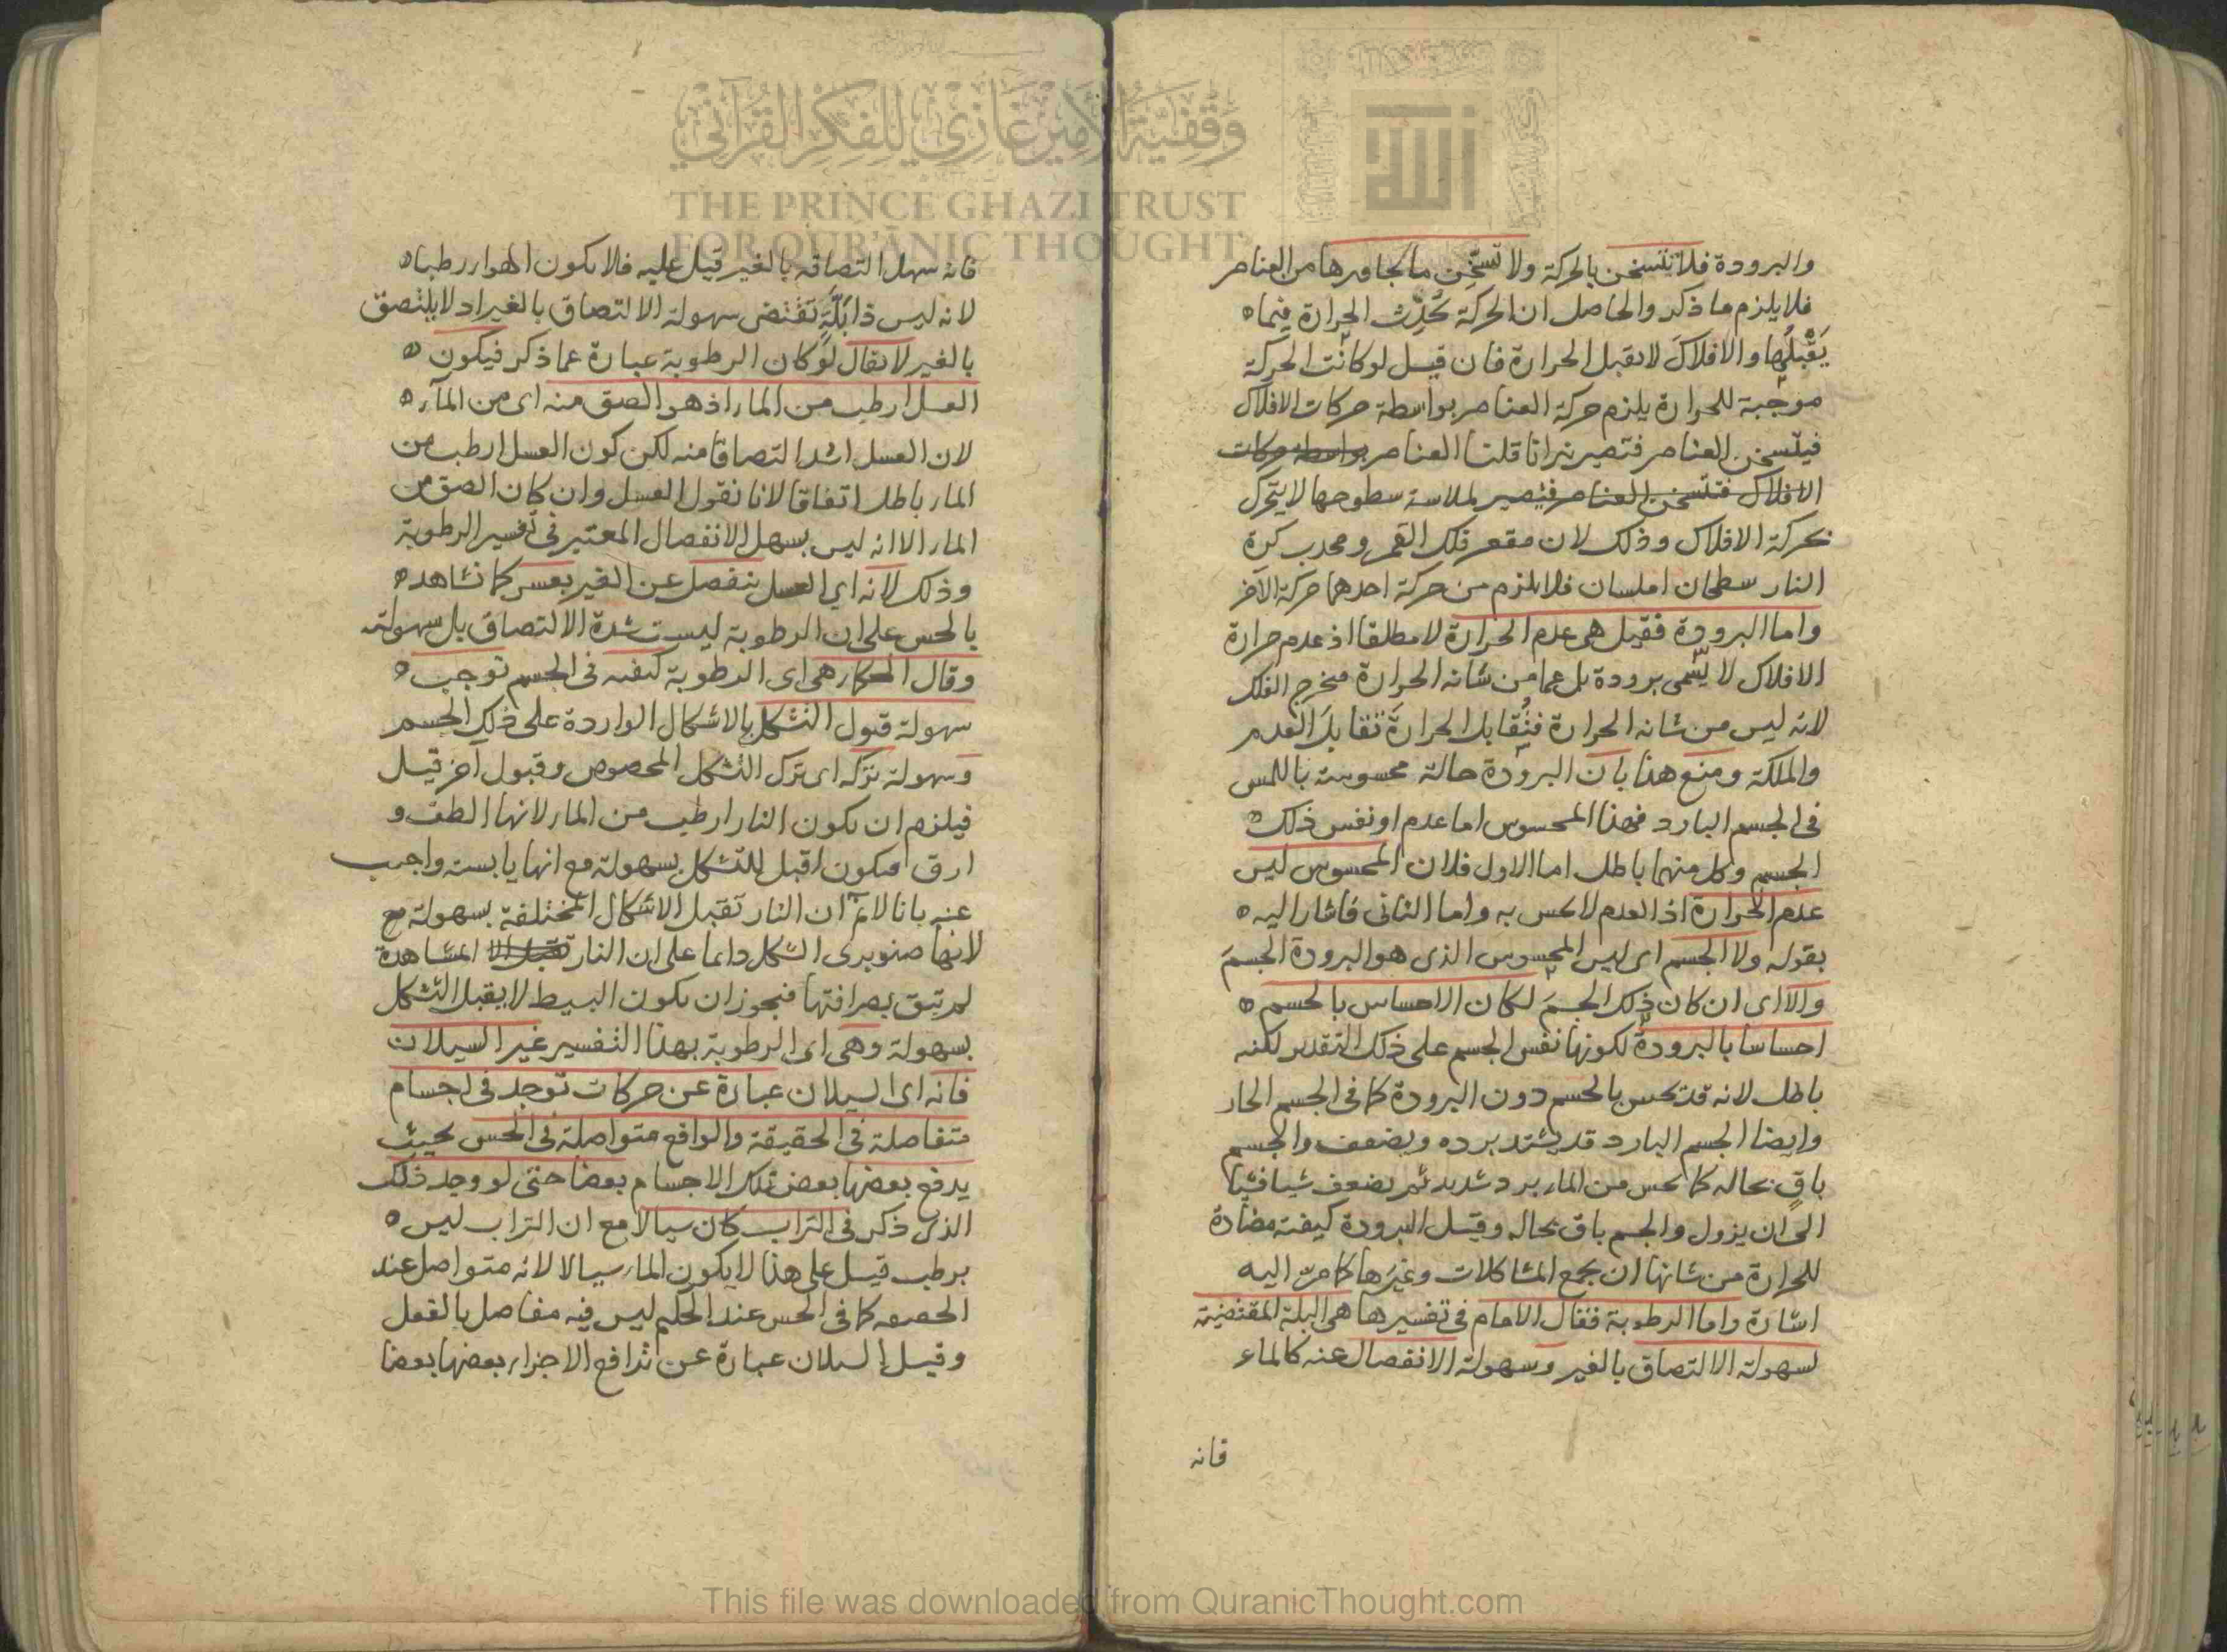 والبرودة فلا تتسخن بالحركة ولا تسخن ما يجاورها من العناصر
فلا يلزم ما ذكر والحاصل ان الحركة تحدث الحرارة فيما
يقبلها والافلاك لا تقبل الحرارة فان قيل لو كانت الحركة
موجبة للحرارة يلزم حركة العناصر بواسطة حركات الافلاك
فيتسخن العناصر فتصير نيرانا قلنا العناصر بواسطة حركات
الافلاك فتتسخن العناصر فيتصير لملاسة سطوحها لا يتحرك
بحركة الافلاك وذلك لان مقعر فلك القمر ومحدب كرة
النار سطحان املسان فلا يلزم من حركة احدهما حركة الآخر
واما البرودة فقيل هى عدم الحرارة لا مطلقا اذ عدم حرارة
الافلاك لا يسمى برودة بل عما من شانه الحرارة فخرج الفلك
لانه ليس من شانه الحرارة فتقابل الحرارة تقابل العدم
والملكة ومنع هذا بان البرودة حالة محسوسة باللمس
فى الجسم البارد فهذا المحسوس اما عدم او نفس ذلك
الجسم وكل منهما باطل اما الاول فلان المحسوس ليس
عدم الحرارة اذ العدم لا يحس به واما الثانى فاشار اليه
بقوله ولا الجسم اى ليس المحسوس الذى هو البرودة الجسم
والا اى ان كان ذلك الجسم لكان الاحساس بالجسم
احساسا بالبرودة لكونها نفس الجسم على ذلك التقدير لكنه
باطل لانه قد يحس بالجسم دون البرودة كما فى الجسم الحار
وايضا الجسم البارد قد يشتد برده ويضعف والجسم
باق بحاله كما يحس من الماء برد شديد ثم يضعف شيا فشيا
الى ان يزول والجسم باق بحاله وقيل البرودة كيفية مضادة
للحرارة من شانها ان يجمع المشاكلات وغيرها كما مرت اليه
اشارة واما الرطوبة فقال الامام فى تفسيرها هى البلة المقتضية
لسهولة الالتصاق بالغير وسهولة الانفصال عنه كالماء
فانه
فانه سهل التصاقه بالغير قيل عليه فلا يكون الهواء رطبا
لانه ليس ذا بلة تقتضى سهولة الالتصاق بالغير اذ لا يلتصق
بالغير لا يقال لو كان الرطوبة عبارة عما ذكر فيكون
العسل ارطب من الماء اذ هو الصق منه اى من المآء
لان العسل اشد التصاقا منه لكن كون العسل ارطب من
الماء باطل اتفاقا لانا نقول العسل وان كان الصق من
الماء الا انه ليس بسهل الانفصال المعتبر فى تفسير الرطوبة
وذلك لانه اى العسل ينفصل عن الغير بعسر كما نشاهد
بالحس على ان الرطوبة ليست شدة الالتصاق بل سهولته
وقال الحكماء هى اى الرطوبة كيفية فى الجسم توجب
سهولة قبول التشكل بالاشكال الواردة على ذلك الجسم
وسهولة تركه اى ترك التشكل المخصوص وقبول آخر قيل
فيلزم ان يكون النار ارطب من الماء لانها الطف و
ارق فيكون اقبل للتشكل بسهولة مع انها يابسة واجيب
عنه بانا لا نم ان النار تقبل الاشكال المختلفة بسهولة مع
لانها صنوبرى الشكل دائما على ان النار تقبل الا المشاهدة
لم تبق بصرافتها فيجوز ان يكون البسيط لا يقبل التشكل
بسهولة وهى اى الرطوبة بهذا التفسير غير السيلان
فانه اى السيلان عبارة عن حركات توجد فى اجسام
متفاصلة فى الحقيقة والواقع متواصلة فى الحس بحيث
يدفع بعضها بعض تلك الاجسام بعضا حتى لو وجد ذلك
الذى ذكر فى التراب كان سيالا مع ان التراب ليس
برطب قيل على هذا لا يكون الماء سيالا لانه متواصل عند
كما فى الحس عند الحكيم ليس فيه مفاصل بالفعل
وقيل السيلان عبارة عن تدافع الاجزاء بعضها بعضا
وقفية الأمير غازي للفكر القرآني
THE PRINCE GHAZI TRUST
FOR QUR'ĀNIC THOUGHT
الله
This file was downloaded from QuranicThought.com